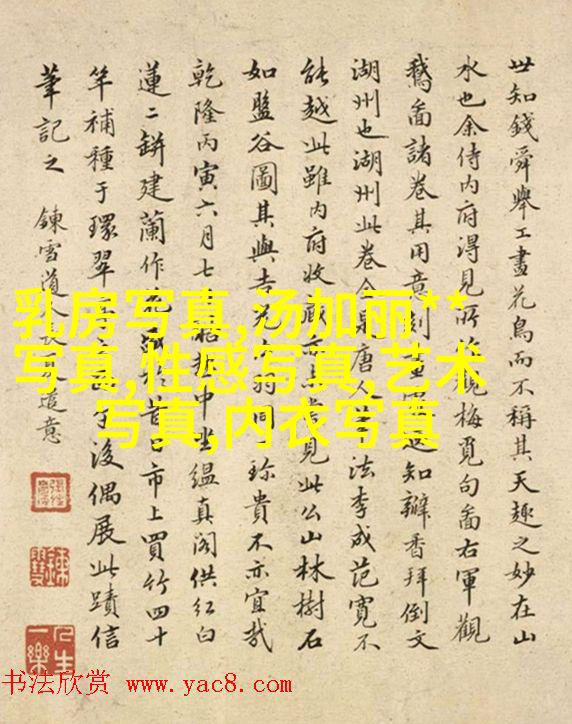 世知錢舜舉工畫花鳥而不稱其天趣之妙在山
水也余侍内府得見所 觀梅覓句畵右軍觀
鵝畵諸卷其用意刻 知辦香拜倒文
湖州也湖州此卷全 唐人 法李成范寛不
能越此雖内府收 見此公山林樹石
如盤谷圖其與 珍貴不亦宜哉
乾隆丙寅六月七 中坐緼真阁供紅白
蓮二缾建蘭作 市上買竹四十
竿補種于環翠 後偶展此蹟信
筆記之 錬雪道人 遣意
乳房写真,汤加丽**
写真,性感写真,艺术
写真,内衣写真
人生一樂
书法欣赏 www.yac8.com